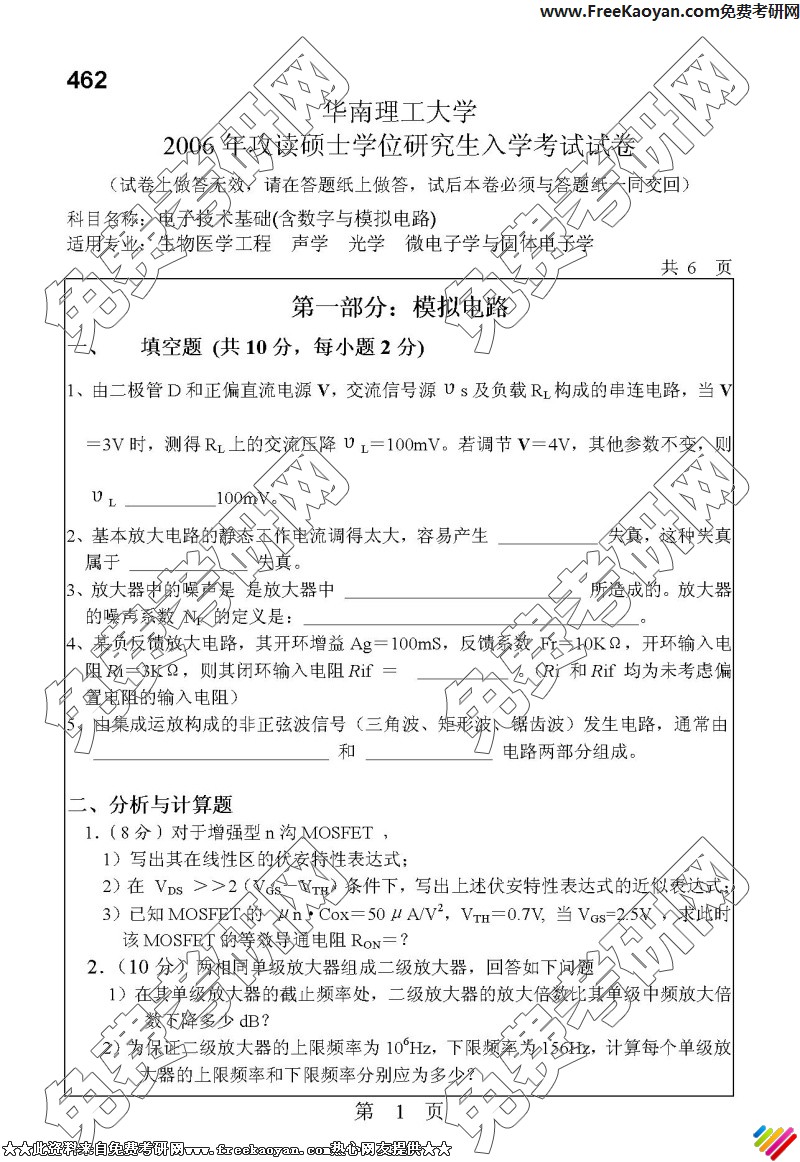 www.FreeKaoyan.com免费考研网
462
华南理工大学
2006 年攻读硕士学位研究生入学考试试卷
（试卷上做答无效，请在答题纸上做答，试后本卷必须与答题纸一同交回）
科目名称：电子技术基础(含数字与模拟电路)
适用专业：生物医学工程 声学 光学 微电子学与固体电子学
共 6 页
第一部分：模拟电路
一、 填空题 (共 10 分，每小题 2 分)
1、由二极管 D 和正偏直流电源 V，交流信号源 υs 及负载 RL 构成的串连电路，当 V
＝3V 时，测得 RL 上的交流压降 υL＝100mV。若调节 V＝4V，其他参数不变，则
υL __________100mV。
2、基本放大电路的静态工作电流调得太大，容易产生 ___________ 失真，这种失真
属于 _____________ 失真。
3、放大器中的噪声是 是放大器中 __________________________ 所造成的。放大器
的噪声系数 NF 的定义是：____________________________________。
4、某负反馈放大电路，其开环增益 Ag＝100mS，反馈系数 Fr＝10KΩ，开环输入电
阻 Ri＝3KΩ，则其闭环输入电阻 Rif ＝ __________ 。（Ri 和 Rif 均为未考虑偏
置电阻的输入电阻）
5、由集成运放构成的非正弦波信号（三角波、矩形波、锯齿波）发生电路，通常由
__________________________ 和 ______________ 电路两部分组成。
二、分析与计算题
1.（8 分）对于增强型 n 沟 MOSFET ，
1）写出其在线性区的伏安特性表达式；
2）在 VDS ＞＞2（VGS－VTH）条件下，写出上述伏安特性表达式的近似表达式；
3）已知 MOSFET 的 μn•Cox＝50μA/V²，VTH＝0.7V, 当 VGS=2.5V ，求此时
该 MOSFET 的等效导通电阻 RON＝？
2.（10 分）两相同单级放大器组成二级放大器，回答如下问题
1）在其单级放大器的截止频率处，二级放大器的放大倍数比其单级中频放大倍
数下降多少 dB？
2）为保证二级放大器的上限频率为 10⁶Hz，下限频率为 156Hz，计算每个单级放
大器的上限频率和下限频率分别应为多少？
第 1 页
★★此资料来自免费考研网www.freekaoyan.com热心网友提供★★
免费考研网
免费考研网
免费考研网
免费考研网
免费考研网
免费考研网